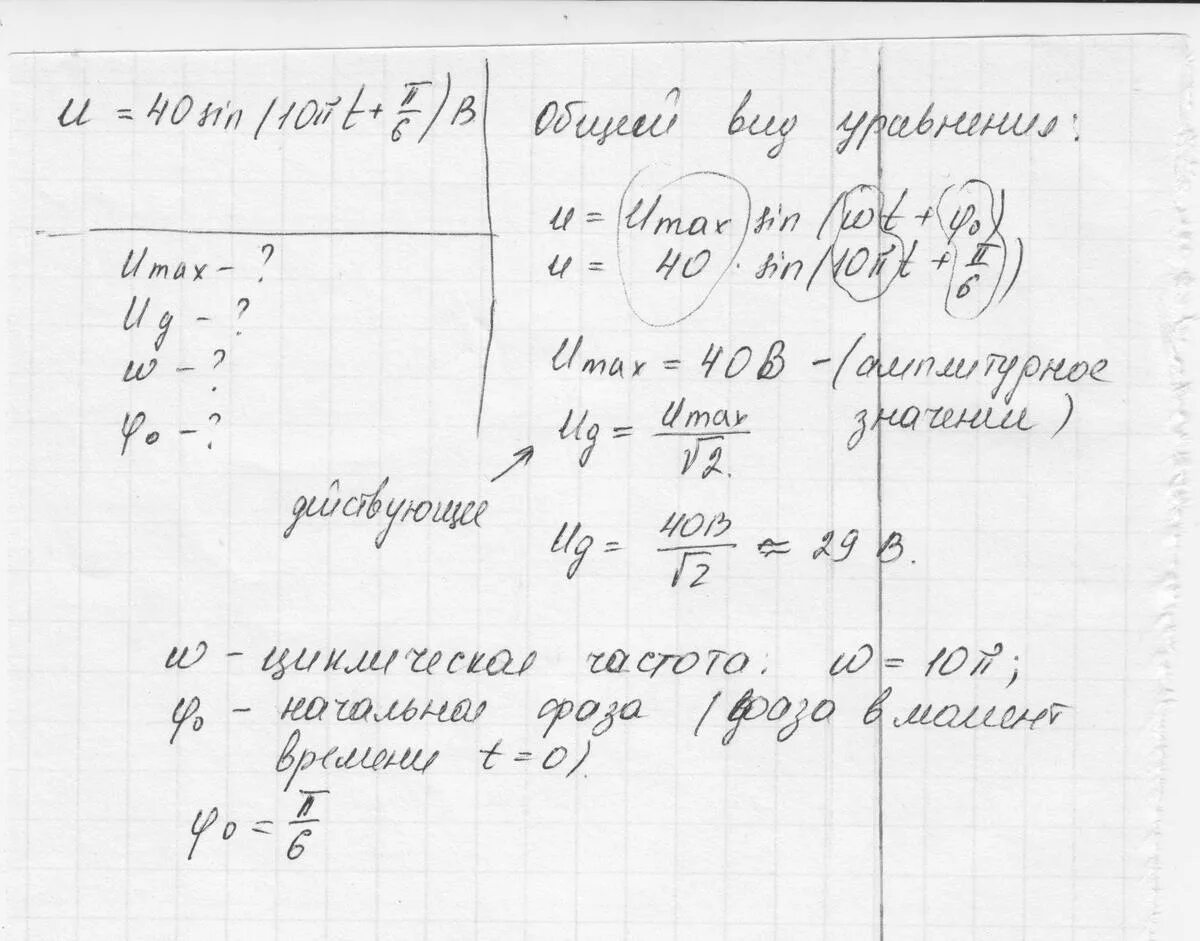 u = 40 sin (10πt + π/6) В
Umax - ?
Uд - ?
ω - ?
φ0 - ?
Общий вид уравнения:
u = Umax sin (ωt + φ0)
u = 40 · sin (10πt + π/6)
Umax = 40В - (амплитурное
значении)
Uд = Umax/√2.
действующее
Uд = 40В/√2 ≈ 29 В.
ω - циклическая частота: ω = 10π;
φ0 - начальная фаза (фаза в момент
времени t = 0).
φ0 = π/6